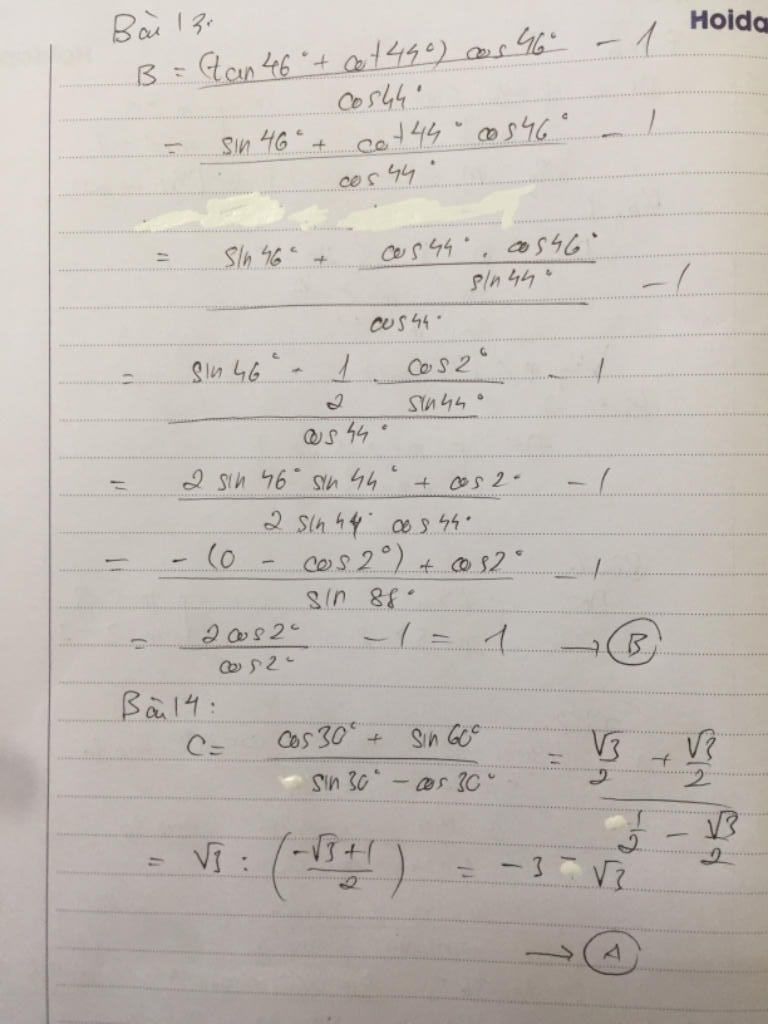 Hoida
Bài 13:
B = (tan46° + cot44°) cos46° / cos44° − 1
= sin46° + cot44° cos46° / cos44° − 1
= sin46° + cos44° . cos46° / sin44° / cos44° − 1
= sin46° - 1/2 . cos2° / sin44° / cos44° − 1
= 2 sin 46° sin 44° + cos2° / 2 sin44° cos44° − 1
= −(0 − cos2°) + cos2° / sin 88° − 1
= 2cos2° / cos2° − 1 = 1 → B
Bài 14:
C = cos30° + sin60° / sin30° − cos30° = √3/2 + √3/2 / 1/2 − √3/2
= √3 : (−√3+1 / 2) = −3 − √3
→ A